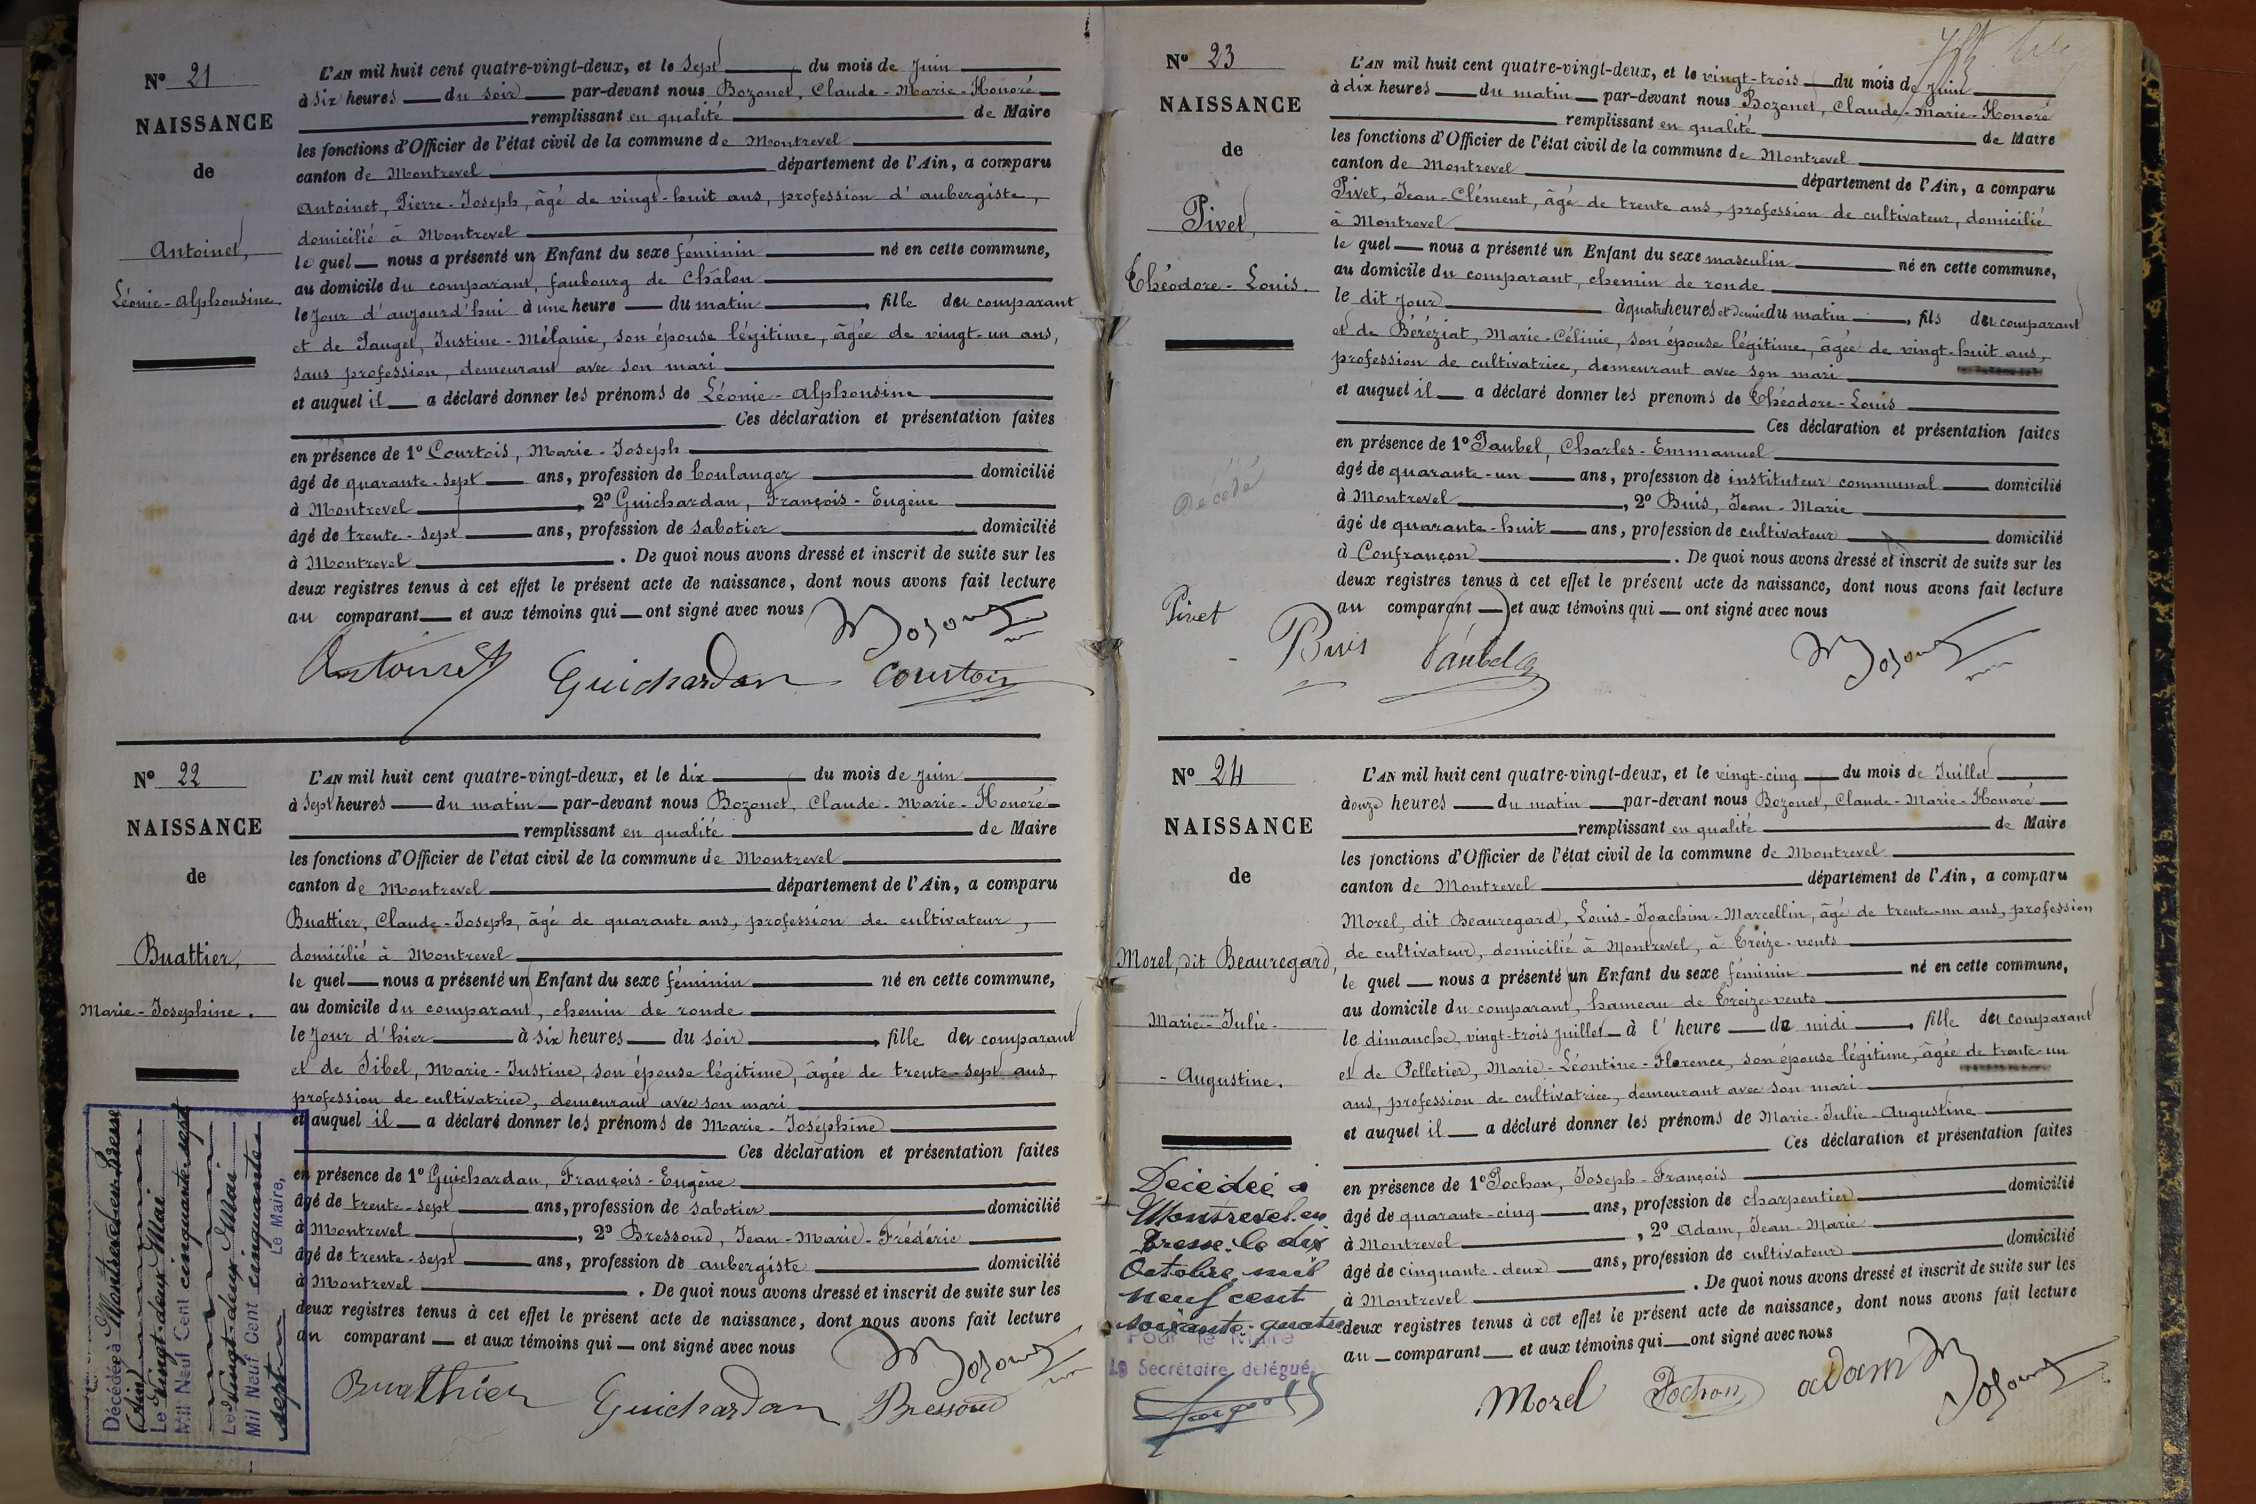 N° 21
NAISSANCE
de
Antoinet,
Léonie-Alphonsine.
L'AN mil huit cent quatre-vingt-deux, et le sept du mois de Juin
à six heures du soir par-devant nous Bozonet, Claude-Marie-Honoré
remplissant en qualité de Maire
les fonctions d'Officier de l'état civil de la commune de Montrevel
canton de Montrevel département de l'Ain, a comparu
Antoinet, Pierre-Joseph, âgé de vingt-huit ans, profession d'aubergiste,
domicilié à Montrevel
le quel nous a présenté un Enfant du sexe féminin né en cette commune,
au domicile du comparant, faubourg de Châlon
le Jour d'aujourd'hui à une heure du matin, fille du comparant
et de Pauget, Justine-Mélanie, son épouse légitime, âgée de vingt-un ans,
sans profession, demeurant avec son mari
et auquel il a déclaré donner les prénoms de Léonie-Alphonsine
Ces déclaration et présentation faites
en présence de 1° Courtois, Marie-Joseph
âgé de quarante-sept ans, profession de boulanger domicilié
à Montrevel, 2° Guichardan, François-Eugène
âgé de trente-sept ans, profession de sabotier domicilié
à Montrevel. De quoi nous avons dressé et inscrit de suite sur les
deux registres tenus à cet effet le présent acte de naissance, dont nous avons fait lecture
au comparant et aux témoins qui ont signé avec nous
Bozonet
Antoinet Guichardan Courtois
N° 22
NAISSANCE
de
Buattier,
Marie-Josephine.
L'AN mil huit cent quatre-vingt-deux, et le dix du mois de Juin
à sept heures du matin par-devant nous Bozonet, Claude-Marie-Honoré
remplissant en qualité de Maire
les fonctions d'Officier de l'état civil de la commune de Montrevel
canton de Montrevel département de l'Ain, a comparu
Buattier, Claude-Joseph, âgé de quarante ans, profession de cultivateur,
domicilié à Montrevel
le quel nous a présenté un Enfant du sexe féminin né en cette commune,
au domicile du comparant, chemin de ronde
le Jour d'hier à six heures du soir, fille du comparant
et de Sibel, Marie-Justine, son épouse légitime, âgée de trente-sept ans,
profession de cultivatrice, demeurant avec son mari
et auquel il a déclaré donner les prénoms de Marie-Joséphine
Ces déclaration et présentation faites
en présence de 1° Guichardan, François-Eugène
âgé de trente-sept ans, profession de sabotier domicilié
à Montrevel, 2° Bressoud, Jean-Marie-Frédéric
âgé de trente-sept ans, profession de aubergiste domicilié
à Montrevel. De quoi nous avons dressé et inscrit de suite sur les
deux registres tenus à cet effet le présent acte de naissance, dont nous avons fait lecture
au comparant et aux témoins qui ont signé avec nous
Bozonet
Buatthier Guichardan Bressoud
Décédée à Montrevel-en-Bresse
(Ain)
Le Vingt-deux Mai
Mil Neuf Cent cinquante-sept
Le Vingt-deux Mai
Mil Neuf Cent cinquante
sept
Le Maire,
N° 23
NAISSANCE
de
Pivet,
Théodore-Louis.
Décédé
L'AN mil huit cent quatre-vingt-deux, et le vingt-trois du mois de Juin
à dix heures du matin par-devant nous Bozonet, Claude-Marie-Honoré
remplissant en qualité de Maire
les fonctions d'Officier de l'état civil de la commune de Montrevel
canton de Montrevel département de l'Ain, a comparu
Pivet, Jean-Clément, âgé de trente ans, profession de cultivateur, domicilié
à Montrevel
le quel nous a présenté un Enfant du sexe masculin né en cette commune,
au domicile du comparant, chemin de ronde
le dit jour à quatre heures et demie du matin, fils du comparant
et de Béréziat, Marie-Célinie, son épouse légitime, âgée de vingt-huit ans,
profession de cultivatrice, demeurant avec son mari
et auquel il a déclaré donner les prenoms de Théodore-Louis
Ces déclaration et présentation faites
en présence de 1° Paubel, Charles-Emmanuel
âgé de quarante-un ans, profession de instituteur communal domicilié
à Montrevel, 2° Buis, Jean-Marie
âgé de quarante-huit ans, profession de cultivateur domicilié
à Confrançon. De quoi nous avons dressé et inscrit de suite sur les
deux registres tenus à cet effet le présent acte de naissance, dont nous avons fait lecture
au comparant et aux témoins qui ont signé avec nous
Pivet Buis Paubel Bozonet
N° 24
NAISSANCE
de
Morel, dit Beauregard,
Marie-Julie-
-Augustine.
L'AN mil huit cent quatre-vingt-deux, et le vingt-cinq du mois de Juillet
à onze heures du matin par-devant nous Bozonet, Claude-Marie-Honoré
remplissant en qualité de Maire
les fonctions d'Officier de l'état civil de la commune de Montrevel
canton de Montrevel département de l'Ain, a comparu
Morel, dit Beauregard, Louis-Joachim-Marcellin, âgé de trente-un ans, profession
de cultivateur, domicilié à Montrevel, à Treize-vents
le quel nous a présenté un Enfant du sexe féminin né en cette commune,
au domicile du comparant, hameau de Treize-vents
le dimanche, vingt-trois juillet à l'heure de midi, fille du comparant
et de Pelletier, Marie-Léontine-Florence, son épouse légitime, âgée de trente-un
ans, profession de cultivatrice, demeurant avec son mari
et auquel il a déclaré donner les prénoms de Marie-Julie-Augustine
Ces déclaration et présentation faites
en présence de 1° Pochon, Joseph-François
âgé de quarante-cinq ans, profession de charpentier domicilié
à Montrevel, 2° Adam, Jean-Marie
âgé de cinquante-deux ans, profession de cultivateur domicilié
à Montrevel. De quoi nous avons dressé et inscrit de suite sur les
deux registres tenus à cet effet le présent acte de naissance, dont nous avons fait lecture
au comparant et aux témoins qui ont signé avec nous
Morel Pochon adam Bozonet
Décédée à
Montrevel-en
Bresse le dix
Octobre mil
neuf cent
soixante-quatre
Pour le Maire
Le Secrétaire délégué,